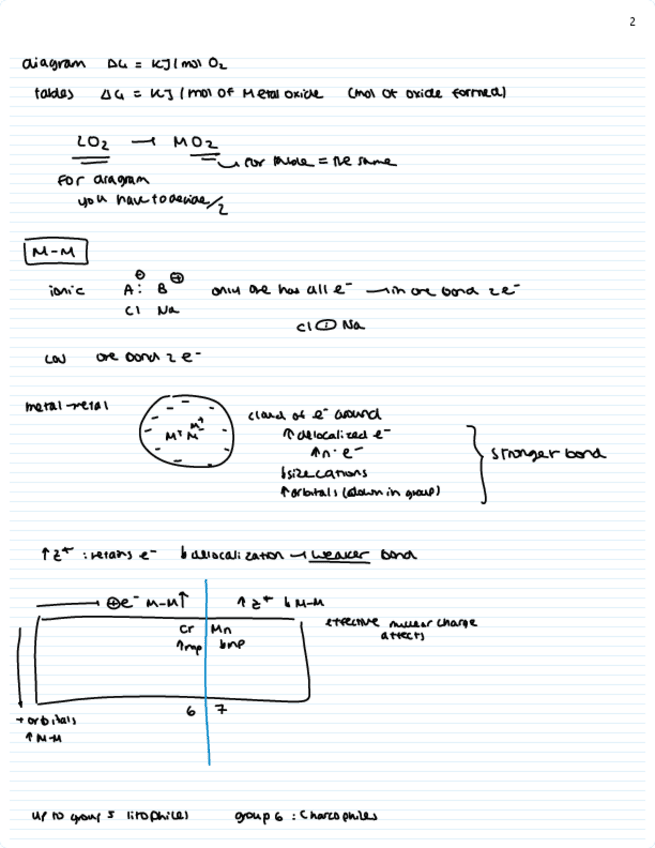 2
diagram ΔG = KJ/mol O2
tables ΔG = KJ/mol of Metal oxide (mol of oxide formed)
2O2 → MO2
for table = the same
For diagram
you have to devide/2
M-M
ionic A: ⊖ B ⊕ only one has all e⁻ → in one bond 2e⁻
Cl Na
Cl Na
cov one bond 2e⁻
metal-metal M⁺ M⁺ M cloud of e⁻ around
↑ delocalized e⁻
↑ n· e⁻
↓ size cations
↑ orbitals (down in group)
stronger bond
↑ z⁺ : retains e⁻ ↓ delocalization → weaker bond
⊕e⁻ M-M↑ ↑ z⁺ ↓ M-M
effective nuclear charge
affects
Cr Mn
↑mp ↓mp
6 7
+ orbitals
↑ M-M
up to group 5 litophiles group 6 : Charcophiles